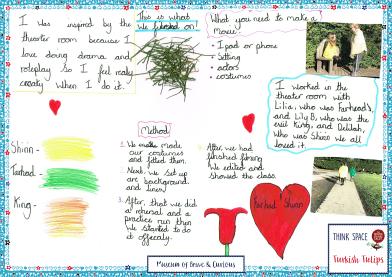 I was inspired by the
theater room because I
love doing drama and
roleplay So I feel really
creaty when I do it.
This is what
we filmed on!
What you need to make a
movie:
• I pad or phone
• Setting
• actors
• costumes
I worked in the
theater room with
Lilia, who was Farhead's,
and Lily B, who was the
evil King, and Delilah,
who was Shirin we all
loved it.
Shirin -
Farhad -
King -
Method
1. We made
our costumes
and fitted them.
Next, we set up
our background
and lines!
2. After that we did
a rehersal and a
practice run then
We started to do
it officaly.
3. After we had
finished filming
We edited and
showed the class.
Farhad
Shirin
Museum of Brave & Curious
THINK SPACE
Turkish Tulips